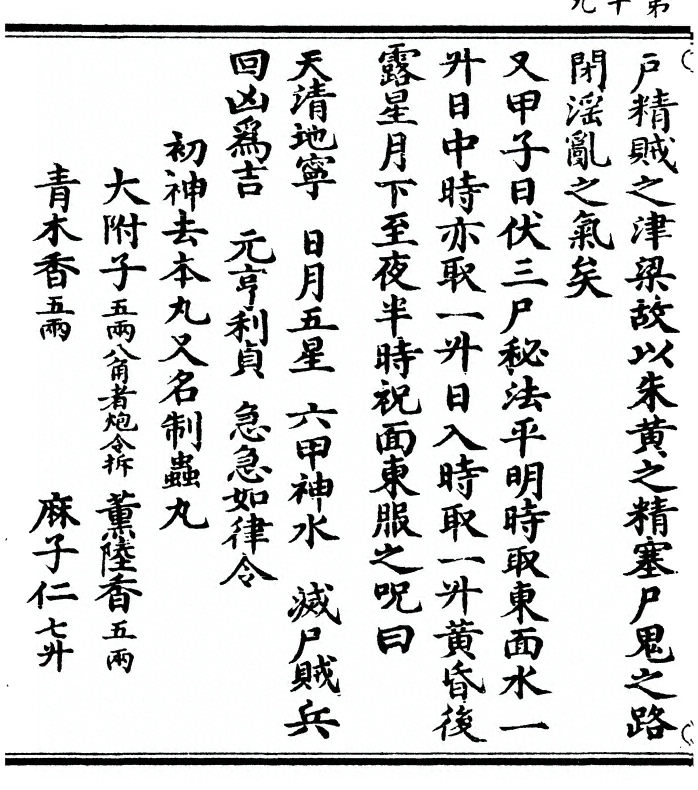 尸精賊之津梁故以朱黃之精塞尸鬼之路
閉滛亂之氣矣
又甲子日伏三尸秘法平明時取東面水一
升日中時亦取一升日入時取一升黃昏後
露星月下至夜半時祝面東服之呪曰
天清地寧　日月五星　六甲神水　滅尸賊兵
回凶為吉　元亨利貞　急急如律令
初神去本丸又名制蟲丸
大附子五兩八角者炮令拆　薰陸香五兩
青木香五兩　麻子仁七升